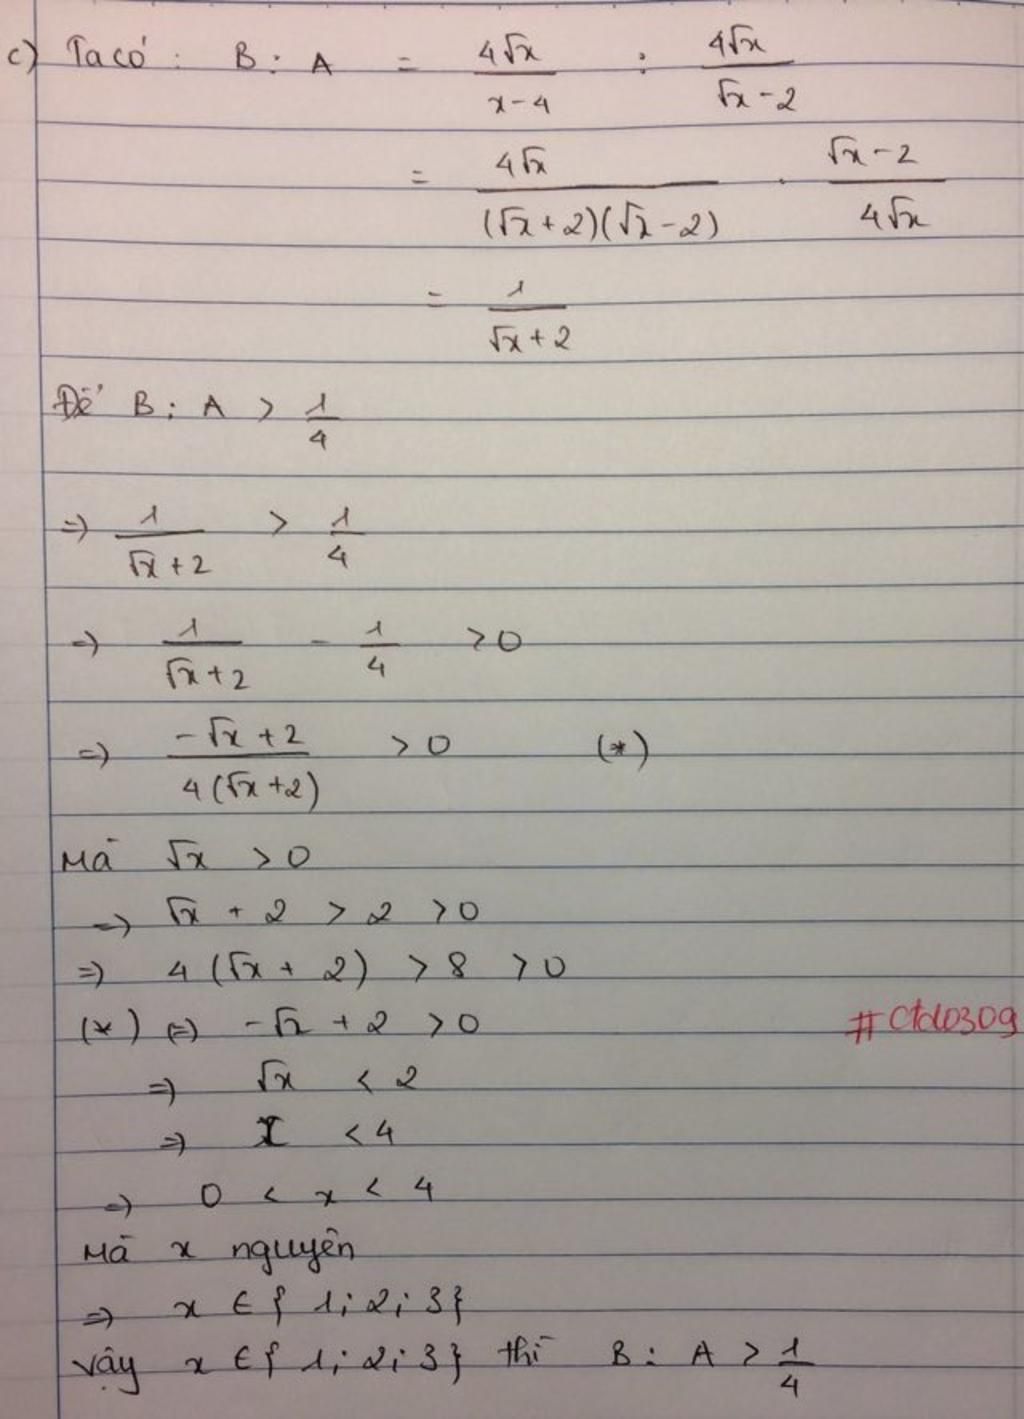 c) Ta có : B : A = 4√x / x-4 : 4√x / √x - 2
= 4√x / (√x + 2)(√x - 2) . √x - 2 / 4√x
= 1 / √x + 2
Để B : A > 1/4
=> 1 / √x + 2 > 1/4
=> 1 / √x + 2 - 1/4 > 0
=> -√x + 2 / 4(√x + 2) > 0 (*)
Mà √x > 0
=> √x + 2 > 2 > 0
=> 4(√x + 2) > 8 > 0
(*) (=) -√x + 2 > 0
#Ctdl0309
=> √x < 2
=> x < 4
=> 0 < x < 4
Mà x nguyên
=> x ∈ { 1; 2; 3}
Vậy x ∈ { 1; 2; 3} thì B : A > 1/4